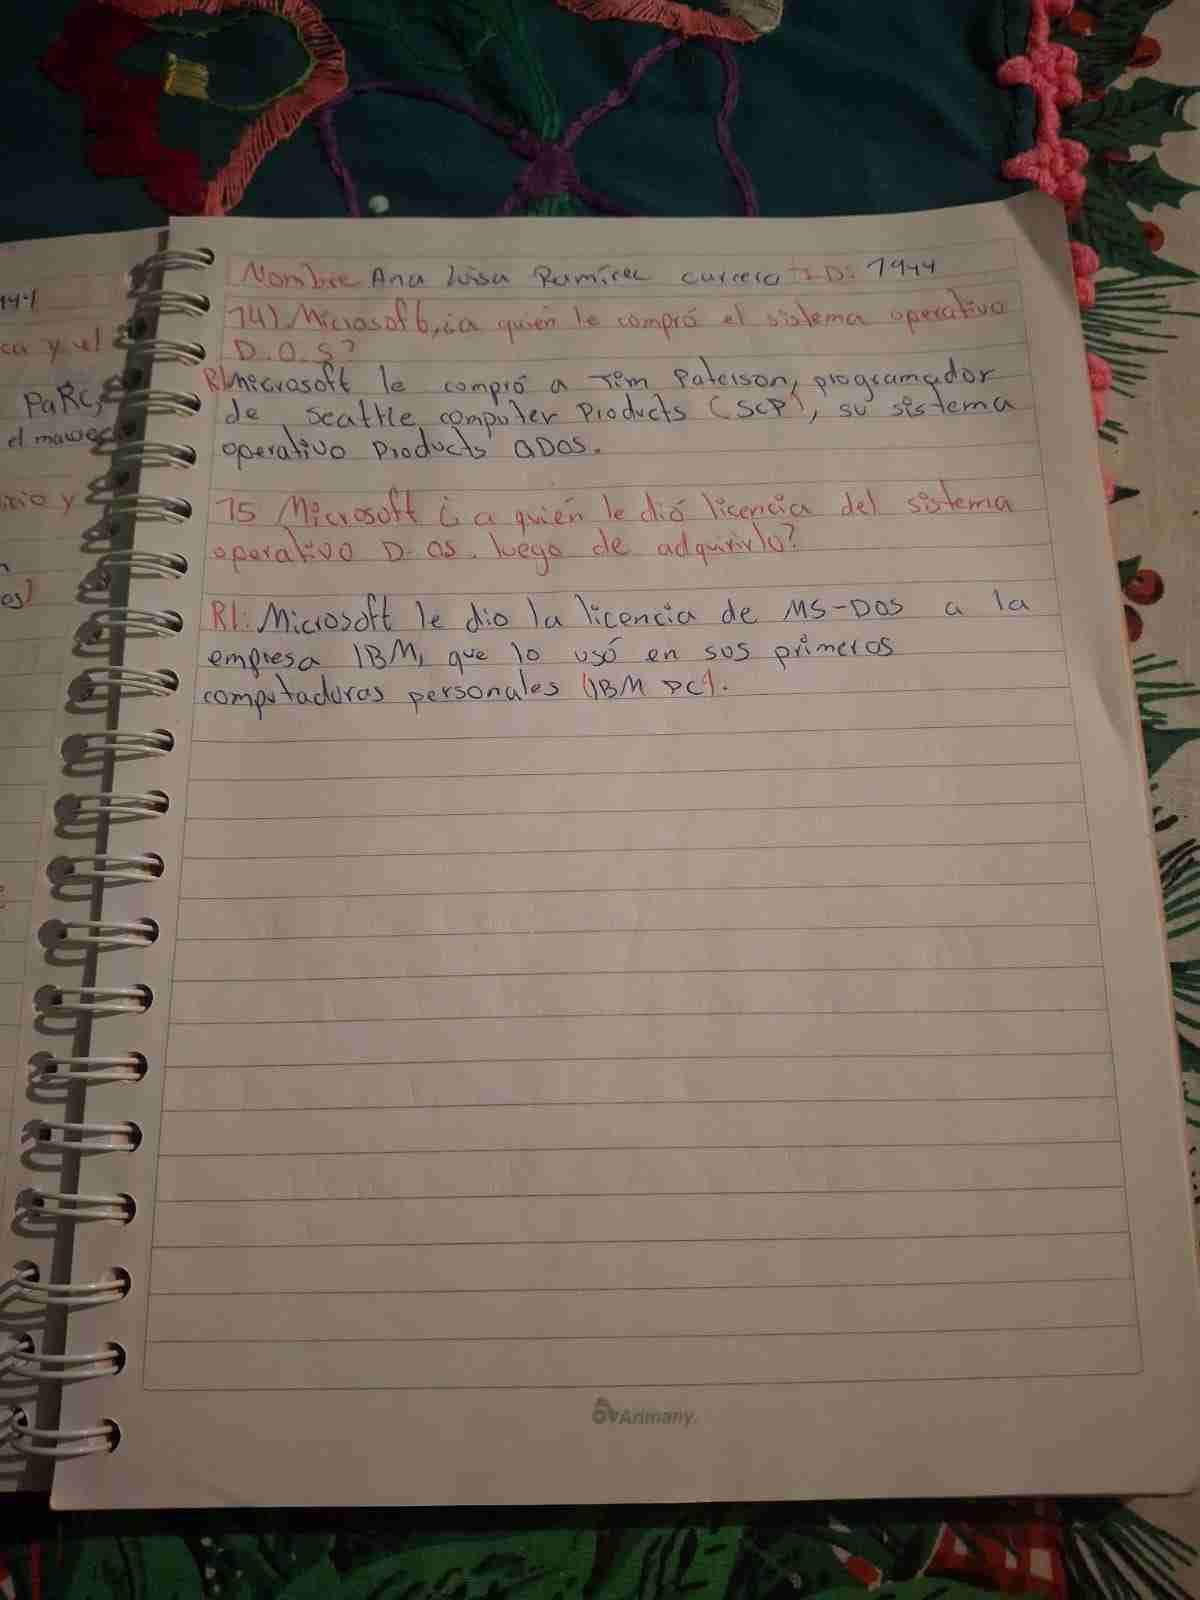 Nombre Ana Luisa Ramírez Carrera ID: 1944
14) Microsoft, ¿a quién le compró el sistema operativo
D.O.S?
R/ Microsoft le compró a Tim Paterson, programador
de Seattle computer Products (SCP), su sistema
operativo Products QDOS.
15 Microsoft ¿a quién le dió licencia del sistema
operativo D.OS. luego de adquirirlo?
R/: Microsoft le dio la licencia de MS-DOS a la
empresa IBM, que lo usó en sus primeros
computadoras personales (IBM PC).
Arimany
ca y el
PaRC,
el mawec
icio y
os)